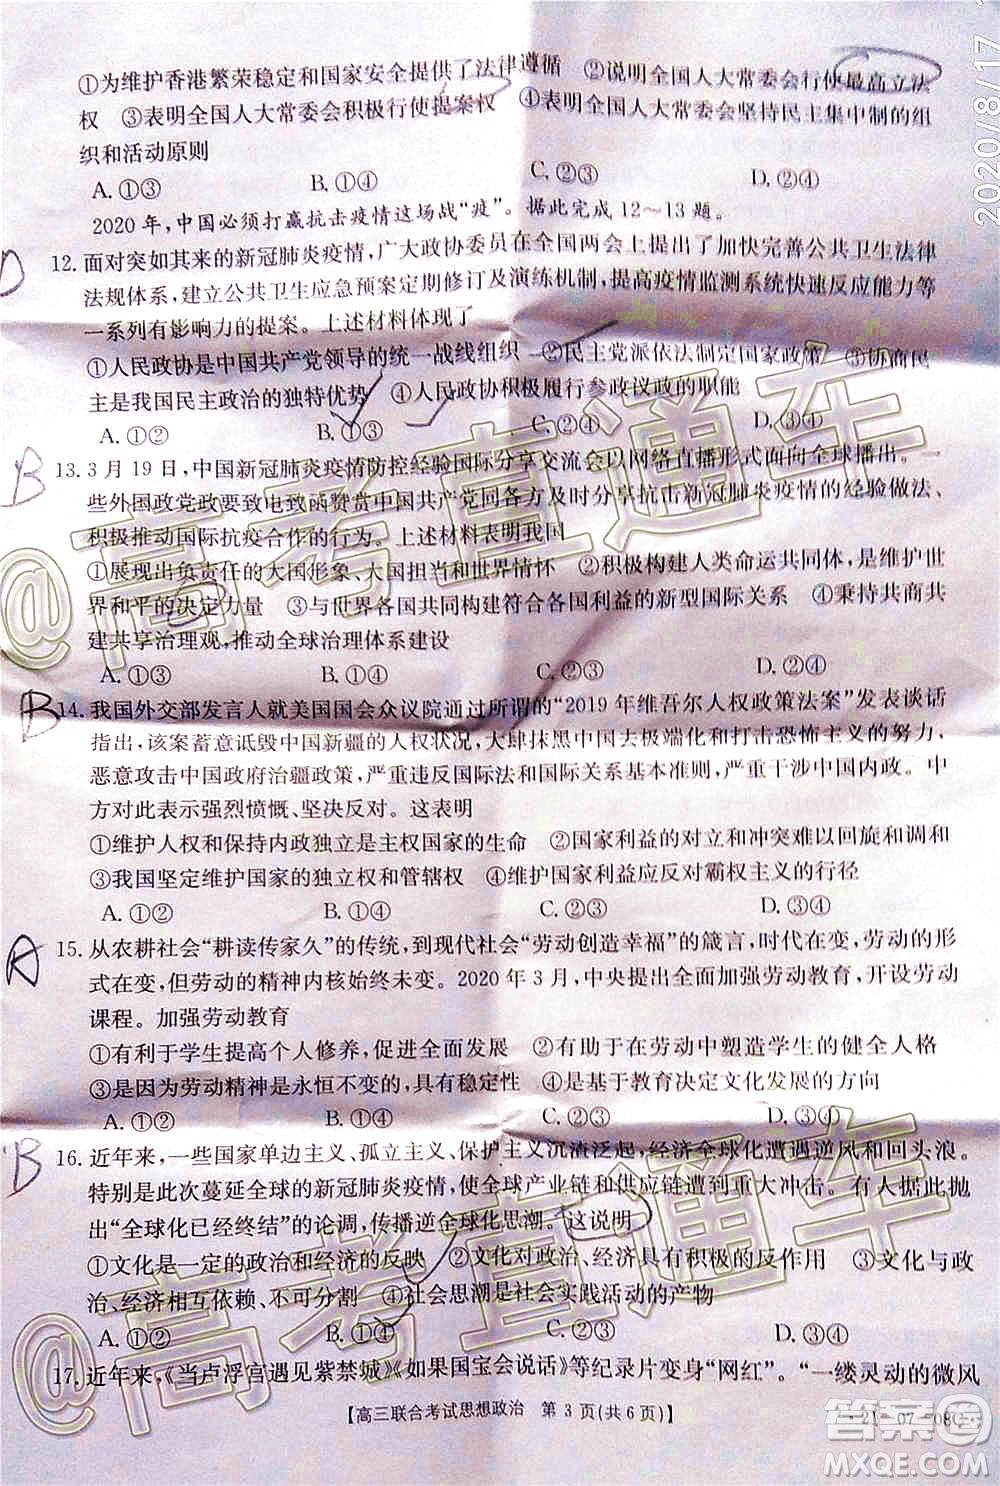 2020/8/17 1
①为维护香港繁荣稳定和国家安全提供了法律遵循　②说明全国人大常委会行使最高立法
权　③表明全国人大常委会积极行使提案权　④表明全国人大常委会坚持民主集中制的组
织和活动原则
A. ①③　B. ①④　C. ②③　D. ②④
2020 年，中国必须打赢抗击疫情这场战“疫”。据此完成 12～13 题。
D
12. 面对突如其来的新冠肺炎疫情，广大政协委员在全国两会上提出了加快完善公共卫生法律
法规体系，建立公共卫生应急预案定期修订及演练机制，提高疫情监测系统快速反应能力等
一系列有影响力的提案。上述材料体现了
①人民政协是中国共产党领导的统一战线组织　②民主党派依法制定国家政策　③协商民
主是我国民主政治的独特优势　④人民政协积极履行参政议政的职能
A. ①②　B. ①③　C. ②④　D. ③④
B
13. 3 月 19 日，中国新冠肺炎疫情防控经验国际分享交流会以网络直播形式面向全球播出。一
些外国政党政要致电致函赞赏中国共产党同各方及时分享抗击新冠肺炎疫情的经验做法、
积极推动国际抗疫合作的行为。上述材料表明我国
①展现出负责任的大国形象、大国担当和世界情怀　②积极构建人类命运共同体，是维护世
界和平的决定力量　③与世界各国共同构建符合各国利益的新型国际关系　④秉持共商共
建共享治理观，推动全球治理体系建设
A. ①③　B. ①④　C. ②③　D. ②④
B
14. 我国外交部发言人就美国国会众议院通过所谓的“2019 年维吾尔人权政策法案”发表谈话
指出，该案蓄意诋毁中国新疆的人权状况，大肆抹黑中国去极端化和打击恐怖主义的努力，
恶意攻击中国政府治疆政策，严重违反国际法和国际关系基本准则，严重干涉中国内政。中
方对此表示强烈愤慨、坚决反对。这表明
①维护人权和保持内政独立是主权国家的生命　②国家利益的对立和冲突难以回旋和调和
③我国坚定维护国家的独立权和管辖权　④国家利益应反对霸权主义的行径
A. ①②　B. ①③　C. ②④　D. ③④
A
15. 从农耕社会“耕读传家久”的传统，到现代社会“劳动创造幸福”的箴言，时代在变，劳动的形
式在变，但劳动的精神内核始终未变。2020 年 3 月，中央提出全面加强劳动教育，开设劳动
课程。加强劳动教育
①有利于学生提高个人修养，促进全面发展　②有助于在劳动中塑造学生的健全人格
③是因为劳动精神是永恒不变的，具有稳定性　④是基于教育决定文化发展的方向
A. ①②　B. ①④　C. ②③　D. ③④
B
16. 近年来，一些国家单边主义、孤立主义、保护主义沉渣泛起，经济全球化遭遇逆风和回头浪。
特别是此次蔓延全球的新冠肺炎疫情，使全球产业链和供应链遭到重大冲击。有人据此抛
出“全球化已经终结”的论调，传播逆全球化思潮。这说明
①文化是一定的政治和经济的反映　②文化对政治、经济具有积极的反作用　③文化与政
治、经济相互依赖、不可分割　④社会思潮是社会实践活动的产物
A. ①②　B. ①④　C. ②③　D. ③④
17. 近年来，《当卢浮宫遇见紫禁城》《如果国宝会说话》等纪录片变身“网红”。“一缕灵动的微风
【高三联合考试思想政治　第 3 页(共 6 页)】
· 21-07-08C ·
@高考直通车
@高考直通车
答案圈
MXQE.COM